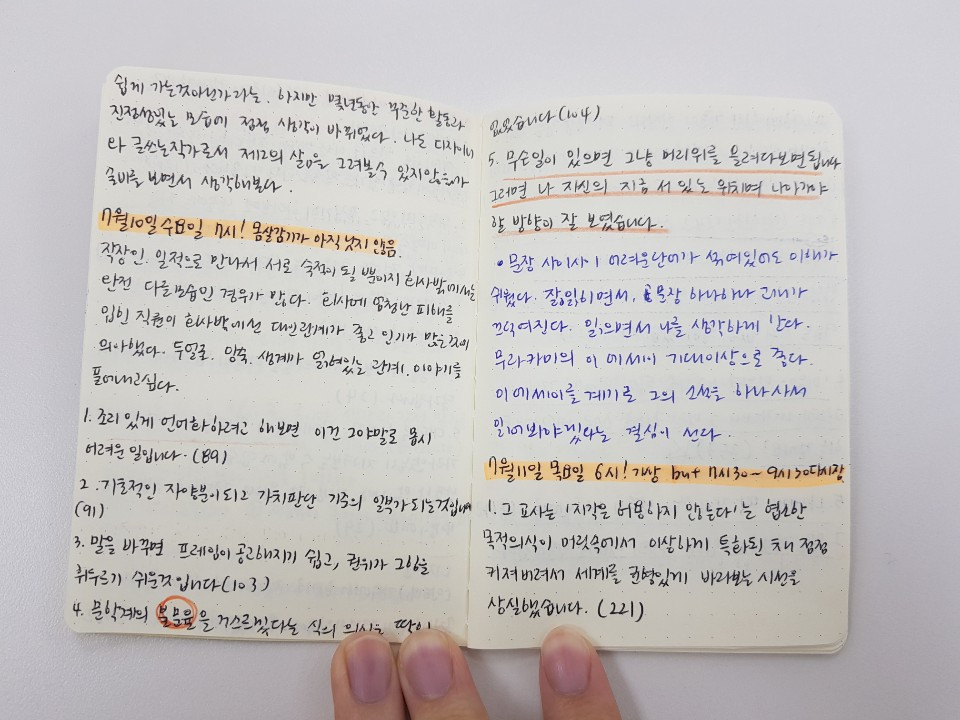 쉽게 가는것아닌가라는. 하지만 몇년동안 꾸준한 활동과
진정성있는 모습에 점점 생각이 바뀌었다. 나도 디자이너
와 글쓰는작가로서 제2의 삶을 그려볼수 있지않을까
술비를 보면서 생각해본다.
7월10일 수요일 7시! 몸살감기가 아직 낫지 않음.
직장인. 일적으로 만나서 서로 숙적이 될 뿐이지 회사밖에서는
완전 다른모습인 경우가 많다. 회사에 엄청난 피해를
입힌 직원이 회사밖에선 대인관계가 좋고 인기가 많은것이
의아했다. 두얼굴. 암축. 생계가 얽혀있는 관계. 이야기를
풀어내고싶다.
1. 조리 있게 언어화하려고 해보면 이건 그야말로 몹시
어려운 일입니다. (89)
2. 기초적인 자양분이 되고 가치판단 기준의 일부가 되는것입니다
(91)
3. 말을 바꾸면 프레임이 공고해지기 쉽고, 권위가 그 힘을
휘두르기 쉬운것입니다 (103)
4. 문학계의 불문율을 거스르겠다는 식의 의식은 딱히
없었습니다 (104)
5. 무슨일이 있으면 그냥 머리위를 올려다보면 됩니다.
그러면 나 자신의 지금 서 있는 위치며 나아가야
할 방향이 잘 보였습니다.
• 문장 사이사이 어려운단어가 섞여있어도 이해가
쉬웠다. 잘읽히면서, 문장 하나하나 고뇌가
끄덕여진다. 읽으면서 나를 생각하게 한다.
무라카미의 이 에세이 기대이상으로 좋다.
이 에세이를 계기로 그의 소설을 하나 사서
읽어봐야겠다는 결심이 선다.
7월11일 목요일 6시! 기상 but 7시30~9시30 다시잠.
1. 그 교사는 '지각을 허용하지 않는다'는 협소한
목적의식이 머릿속에서 이상하게 특화된 채 점점
커져버려서 세계를 균형있게 바라보는 시선을
상실했습니다. (221)